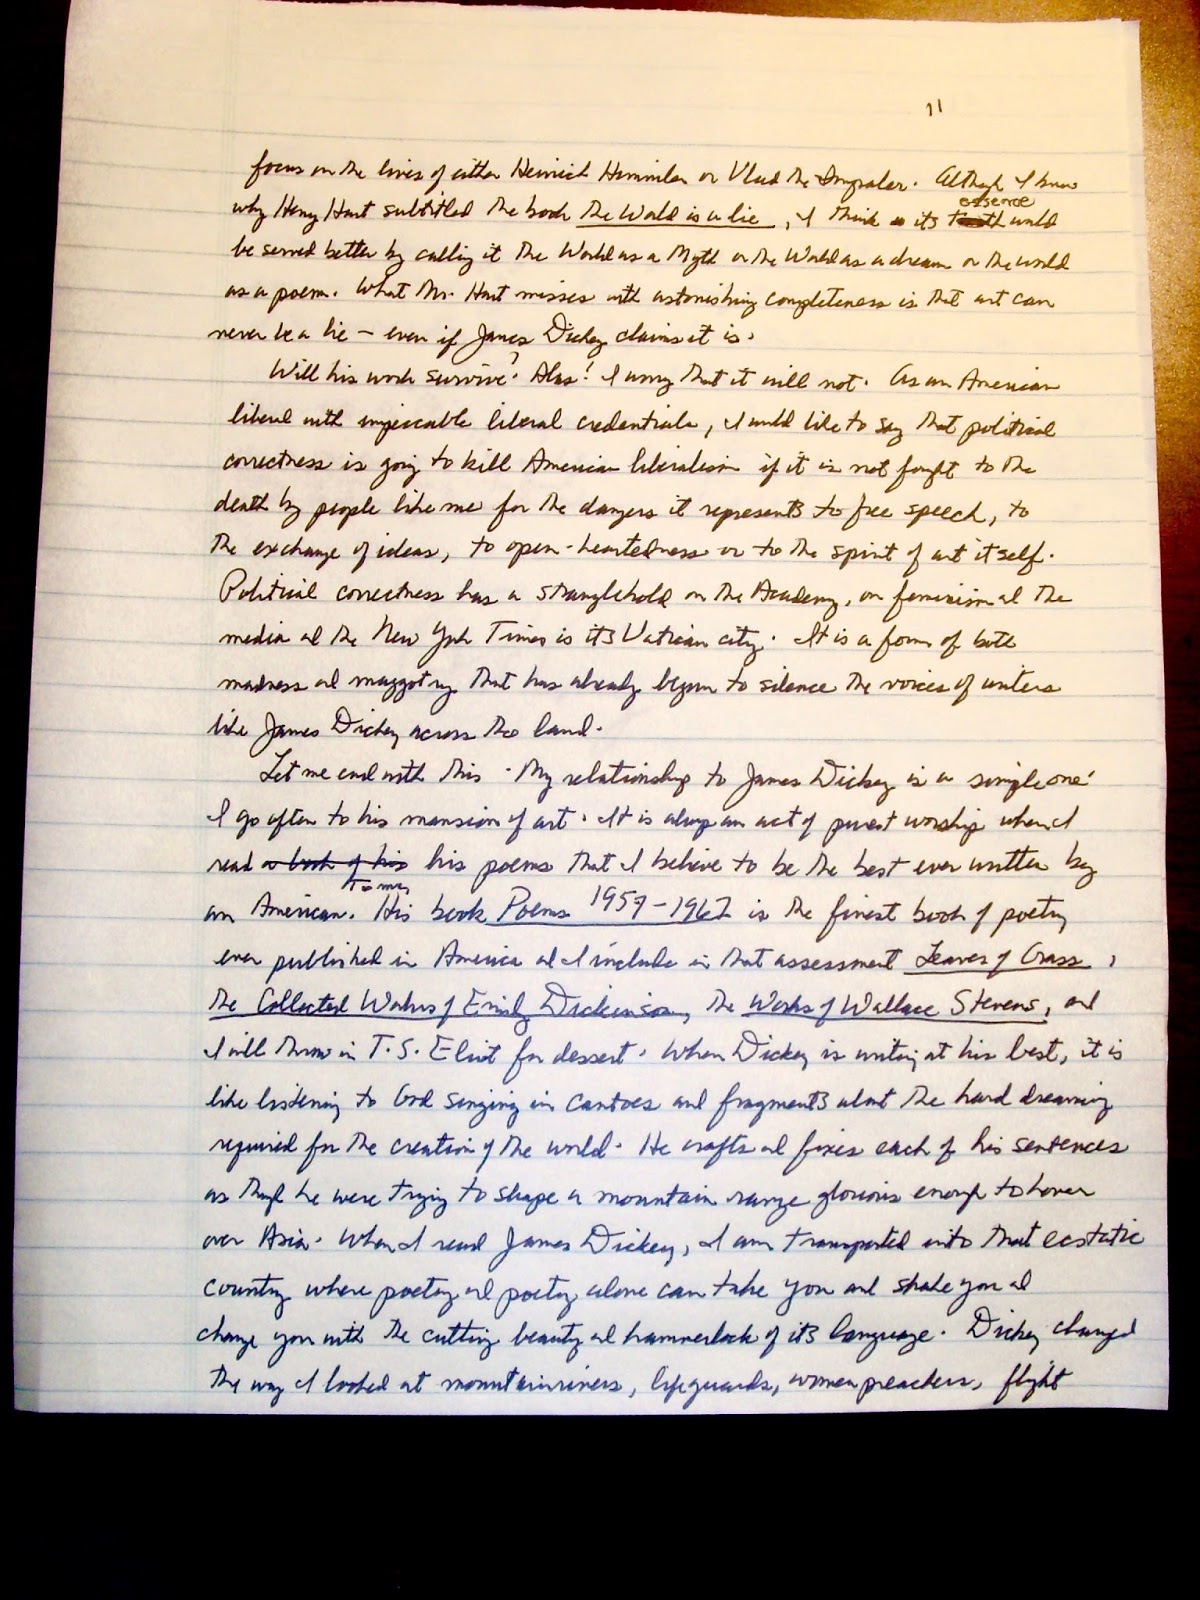 11
focus on the lives of either Heinrich Himmler or Vlad the Impaler. Although I know
essence
why Henry Hart subtitled the book The World is a lie, I think its truth would
be served better by calling it the World as a Myth or the World as a dream or the world
as a poem. What Mr. Hart misses with astonishing completeness is that art can
never be a lie – even if James Dickey claims it is.
Will his work survive? Alas! I worry that it will not. As an American
liberal with impeccable liberal credentials, I would like to say that political
correctness is going to kill American liberalism if it is not fought to the
death by people like me for the dangers it represents to free speech, to
the exchange of ideas, to open-heartedness or to the spirit of art itself.
Political correctness has a stranglehold on the Academy, on feminism and the
media and the New York Times is its Vatican city. It is a form of both
madness and maggotry that has already begun to silence the voices of writers
like James Dickey across the land.
Let me end with this. My relationship to James Dickey is a simple one:
I go often to his mansion of art. It is always an act of purest worship when I
read a book of his his poems that I believe to be the best ever written by
To me,
an American. His book Poems 1957-1967 is the finest book of poetry
ever published in America and I include in that assessment Leaves of Grass,
the Collected Works of Emily Dickinson, the Works of Wallace Stevens, and
I will throw in T.S. Eliot for dessert. When Dickey is writing at his best, it is
like listening to God singing in cantos and fragments about the hard dreaming
required for the creation of the world. He crafts and fixes each of his sentences
as though he were trying to shape a mountain range glorious enough to hover
over Asia. When I read James Dickey, I am transported into that ecstatic
country where poetry and poetry alone can take you and shake you and
change you with the cutting beauty and hammerlock of its language. Dickey changed
the way I looked at mountainriners, lifeguards, women preachers, flight